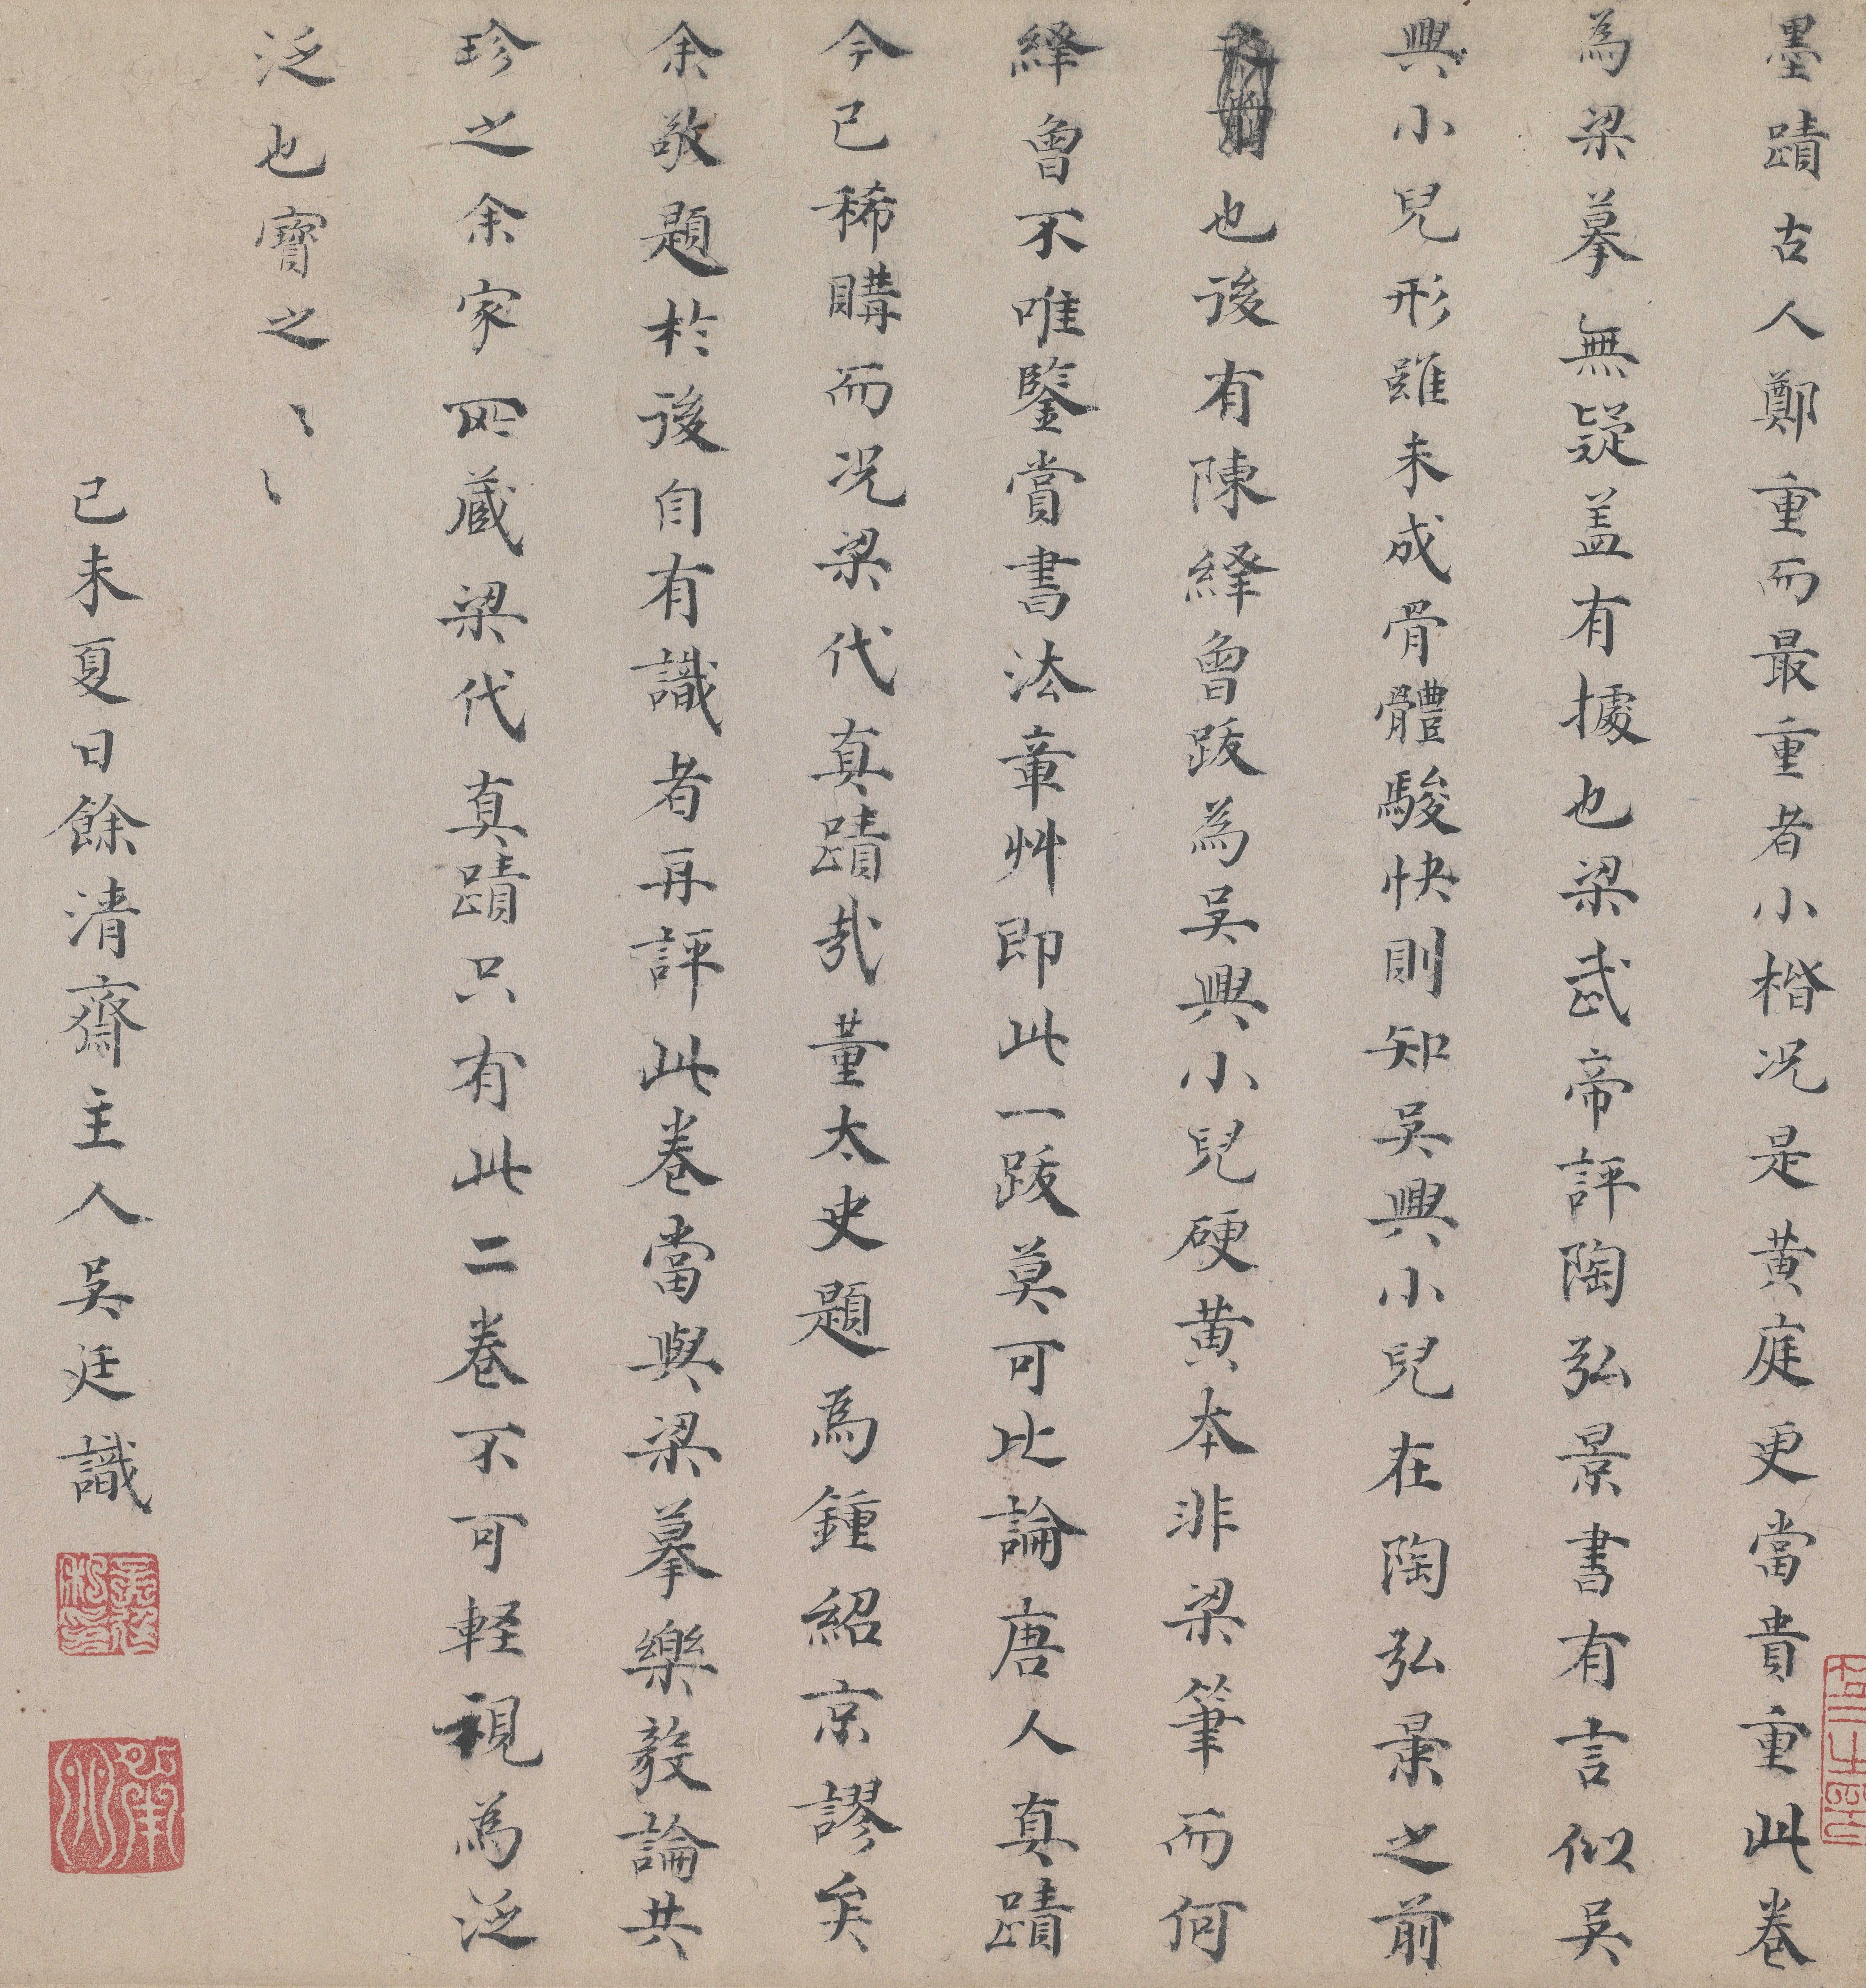 墨蹟古人鄭重而最重者小楷况是黄庭更當貴重此卷
為梁摹無疑盖有據也梁武帝評陶弘景書有言似吴
興小兒形雖未成骨體駿快則知吴興小兒在陶弘景之前
也後有陳繹曾跋為吴興小兒硬黄本非梁筆而何
繹曾不唯鑒賞書法章艸即此一跋莫可比論唐人真蹟
今已稀購而况梁代真蹟哉董太史題為鍾紹京謬矣
余敬題於後自有識者再評此卷當與梁摹樂毅論共
珍之余家四藏梁代真蹟只有此二卷不可輕視為泛
泛也寶之〻〻
己未夏日餘清齋主人吴廷識